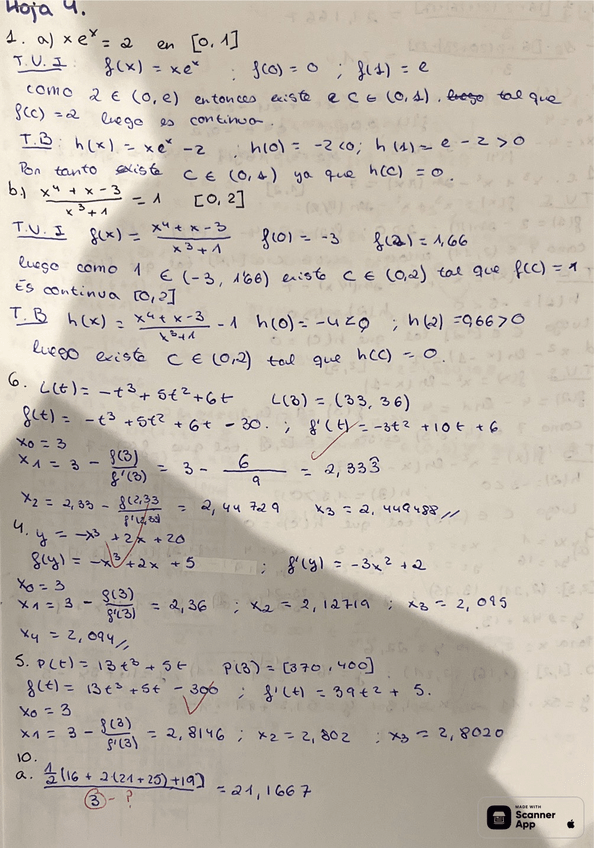 Hoja 4.
1. a) x eˣ = 2 en [0,1]
T.V.I: f(x) = xeˣ ; f(0) = 0 ; f(1) = e
como 2 ∈ (0,e) entonces existe c ∈ (0,1). luego tal que
f(c) = 2 luego es continua.
T.B: h(x) = xeˣ - 2 ; h(0) = -2<0; h(1) = e - 2 > 0
Por tanto existe c ∈ (0,1) ya que h(c) = 0.
b) (x⁴ + x - 3)/(x³ + 1) = 1 [0,2]
T.V.I f(x) = (x⁴ + x - 3)/(x³ + 1) f(0) = -3 f(2) = 1,66
luego como 1 ∈ (-3, 1'66) existe c ∈ (0,2) tal que f(c) = 1.
Es continua [0,2]
T.B h(x) = (x⁴ + x - 3)/(x³ + 1) - 1 h(0) = -4 < 0 ; h(2) = 0,66 > 0
luego existe c ∈ (0,2) tal que h(c) = 0.
6. L(t) = -t³ + 5t² + 6t L(3) = (33, 36)
f(t) = -t³ + 5t² + 6t - 30. ; f'(t) = -3t² + 10t + 6
x0 = 3
x1 = 3 - f(3)/f'(3) = 3 - 6/9 = 2,333
x2 = 2,33 - f(2,33)/f'(2,33) = 2,44729 x3 = 2,449488 //
4. y = -x³ + 2x + 20
f(y) = -x³ + 2x + 5 ; f'(y) = -3x² + 2
x0 = 3
x1 = 3 - f(3)/f'(3) = 2,36 ; x2 = 2,12719 ; x3 = 2,095
x4 = 2,094 //
5. P(t) = 13t³ + 5t P(3) = [370, 400]
f(t) = 13t³ + 5t - 300 ; f'(t) = 39t² + 5.
x0 = 3
x1 = 3 - f(3)/f'(3) = 2,8146 ; x2 = 2,802 ; x3 = 2,8020
10.
a. ½[16 + 2(21 + 25) + 19]/3 - ? = 21,1667
MADE WITH
Scanner
App